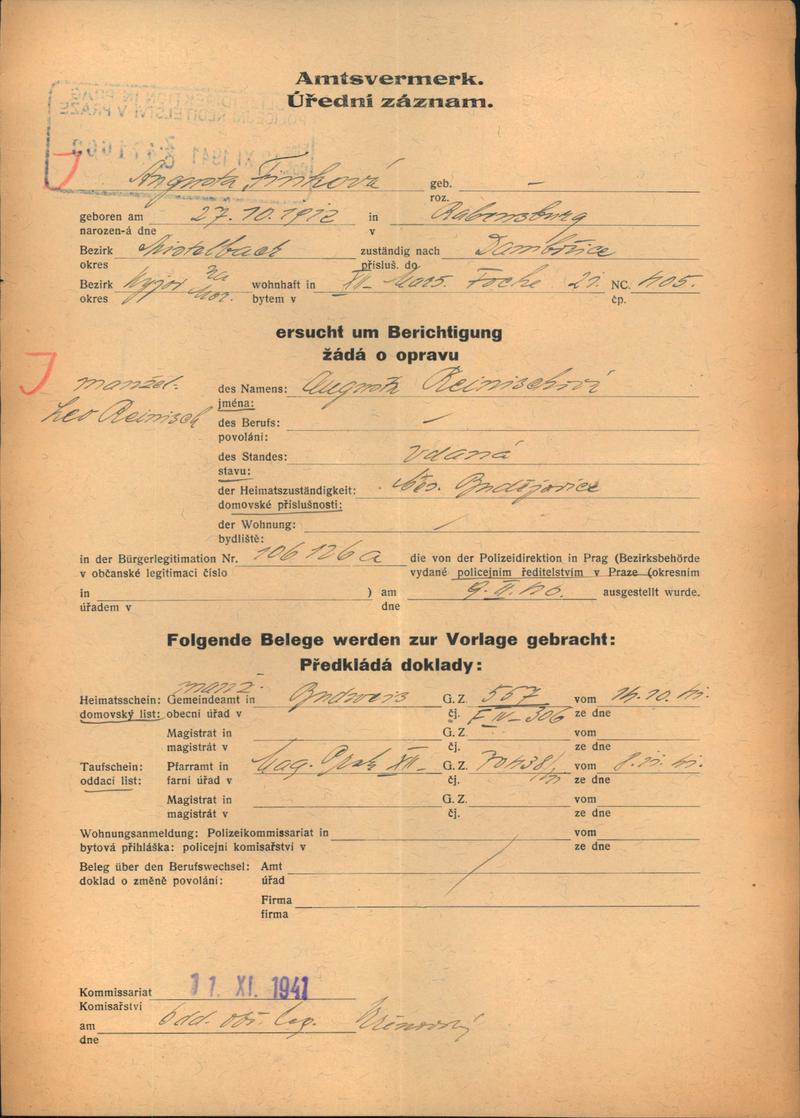 Amtsvermerk.
Úřední záznam.
POLIZEIDIREKTION IN PRAG
POLICEJNÍ ŘEDITELSTVÍ V PRAZE
XI 1941
J
Augusta Finková geb. —
roz.
geboren am 27.10.1912 in Rabensburg
narozen-á dne v
Bezirk Mistelbach zuständig nach Dambořice
okres přísluš. do
Bezirk Kyjov na Mor. wohnhaft in XII- Mars. Foche 21. NC. 405.
okres bytem v čp.
ersucht um Berichtigung
žádá o opravu
J
manžel:
Leo Reinisch
des Namens: Augusta Reinischová
jména:
des Berufs: —
povolání:
des Standes: vdaná
stavu:
der Heimatszuständigkeit: Čes. Budějovice
domovské příslušnosti:
der Wohnung:
bydliště:
in der Bürgerlegitimation Nr. 106126a die von der Polizeidirektion in Prag (Bezirksbehörde
v občanské legitimaci číslo vydané policejním ředitelstvím v Praze (okresním
in ) am 9. II. 40. ausgestellt wurde.
úřadem v dne
Folgende Belege werden zur Vorlage gebracht:
Předkládá doklady:
manž.
Heimatsschein: Gemeindeamt in Budweis G. Z. 557 vom 14.10.41.
domovský list: obecní úřad v čj. F IV-306 ze dne
Magistrat in G. Z. vom
magistrát v čj. ze dne
Taufschein: Pfarramt in Mag. Prak XII- G. Z. vom
oddací list: farní úřad v čj. ze dne
Magistrat in G. Z. vom
magistrát v čj. ze dne
Wohnungsanmeldung: Polizeikommissariat in vom
bytová přihláška: policejní komisařství v ze dne
Beleg über den Berufswechsel: Amt
doklad o změně povolání: úřad
Firma
firma
Kommissariat 11. XI. 1941
Komisařství
am Odd. obč. leg.
dne